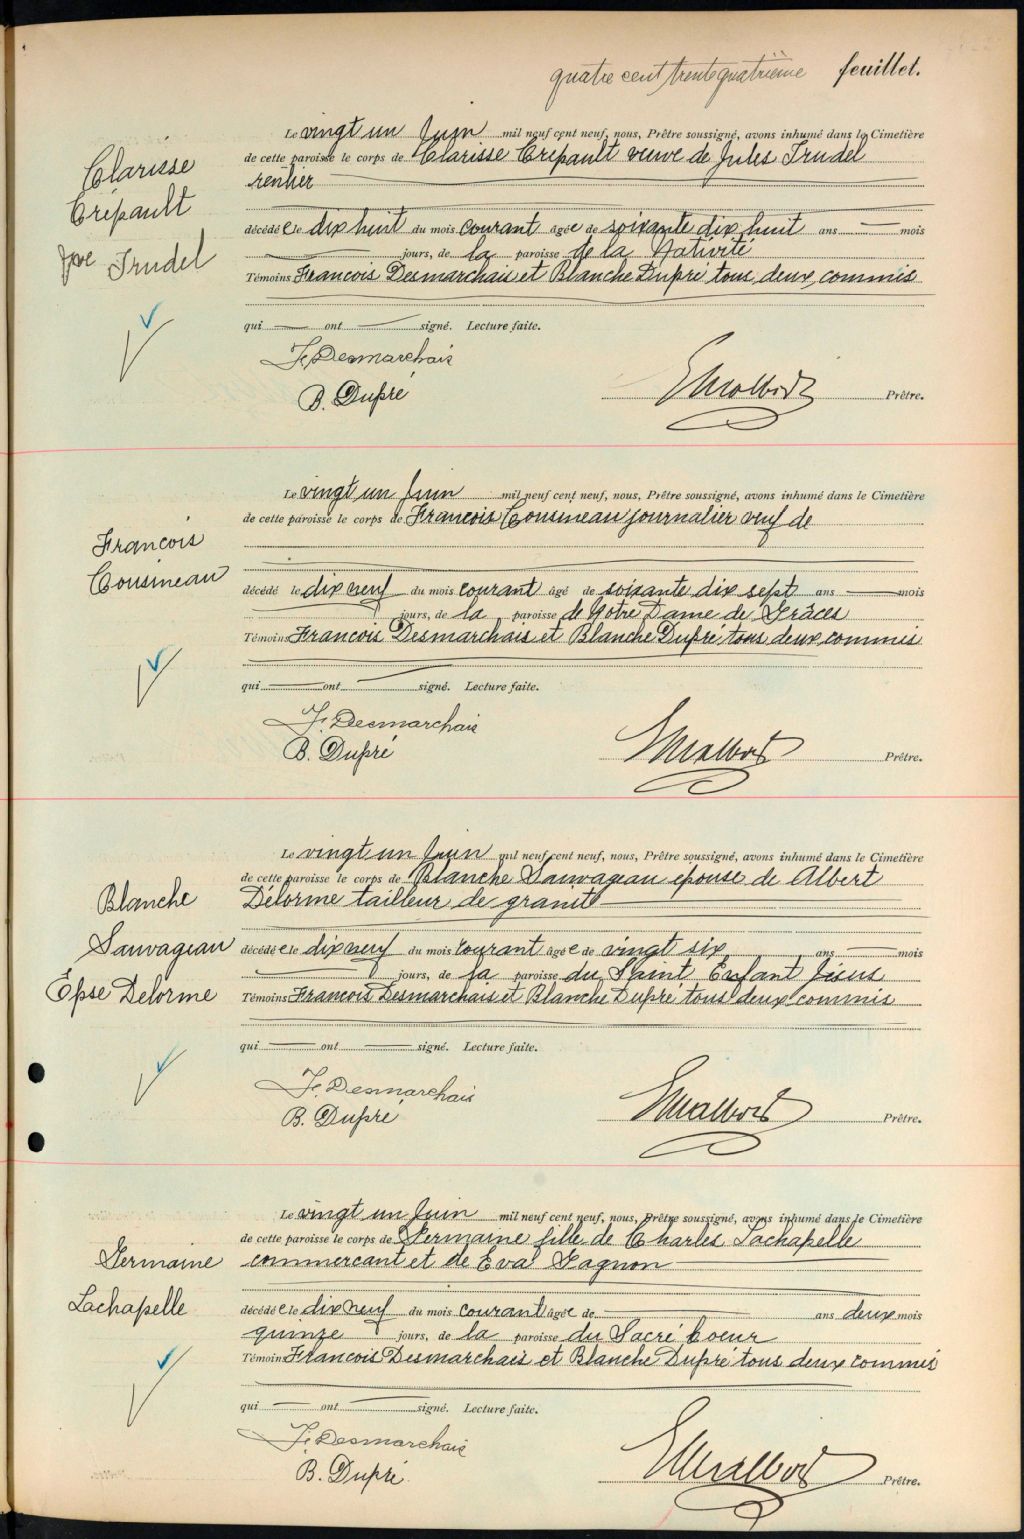 quatre cent trente quatrième feuillet.
Le vingt un Juin mil neuf cent neuf, nous, Prêtre soussigné, avons inhumé dans le Cimetière
de cette paroisse le corps de Clarisse Crépault veuve de Jules Trudel
rentier
Clarisse
Crépault
Jve Trudel
décédée le dix huit du mois courant âgée de soixante dix huit ans — mois
— jours, de la paroisse de la Nativité
Témoins Francois Desmarchais et Blanche Dupré tous deux commis
qui — ont — signé. Lecture faite.
F. Desmarchais
B. Dupré
Prêtre.
Le vingt un Juin mil neuf cent neuf, nous, Prêtre soussigné, avons inhumé dans le Cimetière
de cette paroisse le corps de François Cousineau journalier veuf de
François
Cousineau
décédé le dix neuf du mois courant âgé de soixante dix sept ans — mois
jours, de la paroisse de Notre Dame de Grâces
Témoins Francois Desmarchais et Blanche Dupré tous deux commis
qui — ont — signé. Lecture faite.
F. Desmarchais
B. Dupré
Prêtre.
Le vingt un Juin mil neuf cent neuf, nous, Prêtre soussigné, avons inhumé dans le Cimetière
de cette paroisse le corps de Blanche Sauvageau épouse de Albert
Délorme tailleur de granit
Blanche
Sauvageau
Épse Delorme
décédée le dix neuf du mois courant âgée de vingt six ans — mois
— jours, de la paroisse du Saint Enfant Jésus
Témoins Francois Desmarchais et Blanche Dupré tous deux commis
qui — ont — signé. Lecture faite.
F. Desmarchais
B. Dupré
Prêtre.
Le vingt un Juin mil neuf cent neuf, nous, Prêtre soussigné, avons inhumé dans le Cimetière
de cette paroisse le corps de Germaine fille de Charles Lachapelle
commercant et de Eva Gagnon
Germaine
Lachapelle
décédée le dix neuf du mois courant âgée de — ans deux mois
quinze jours, de la paroisse du Sacré Coeur
Témoins Francois Desmarchais et Blanche Dupré tous deux commis
qui — ont — signé. Lecture faite.
F. Desmarchais
B. Dupré
Prêtre.